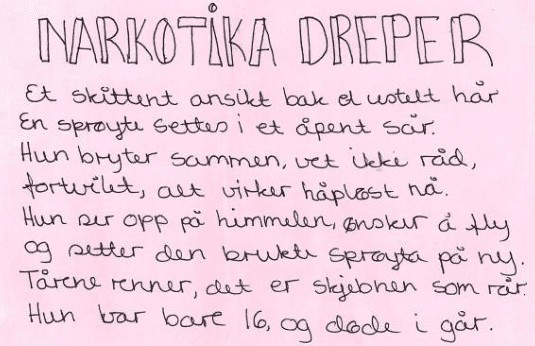 NARKOTIKA DREPER
Et skittent ansikt bak et ustelt hår
En sprøyte settes i et åpent sår.
Hun bryter sammen, vet ikke råd,
fortvilet, alt virker håpløst nå.
Hun ser opp på himmelen, ønsker å fly
og setter den brukte sprøyta på ny.
Tårene renner, det er skjebnen som rår.
Hun var bare 16, og døde i går.